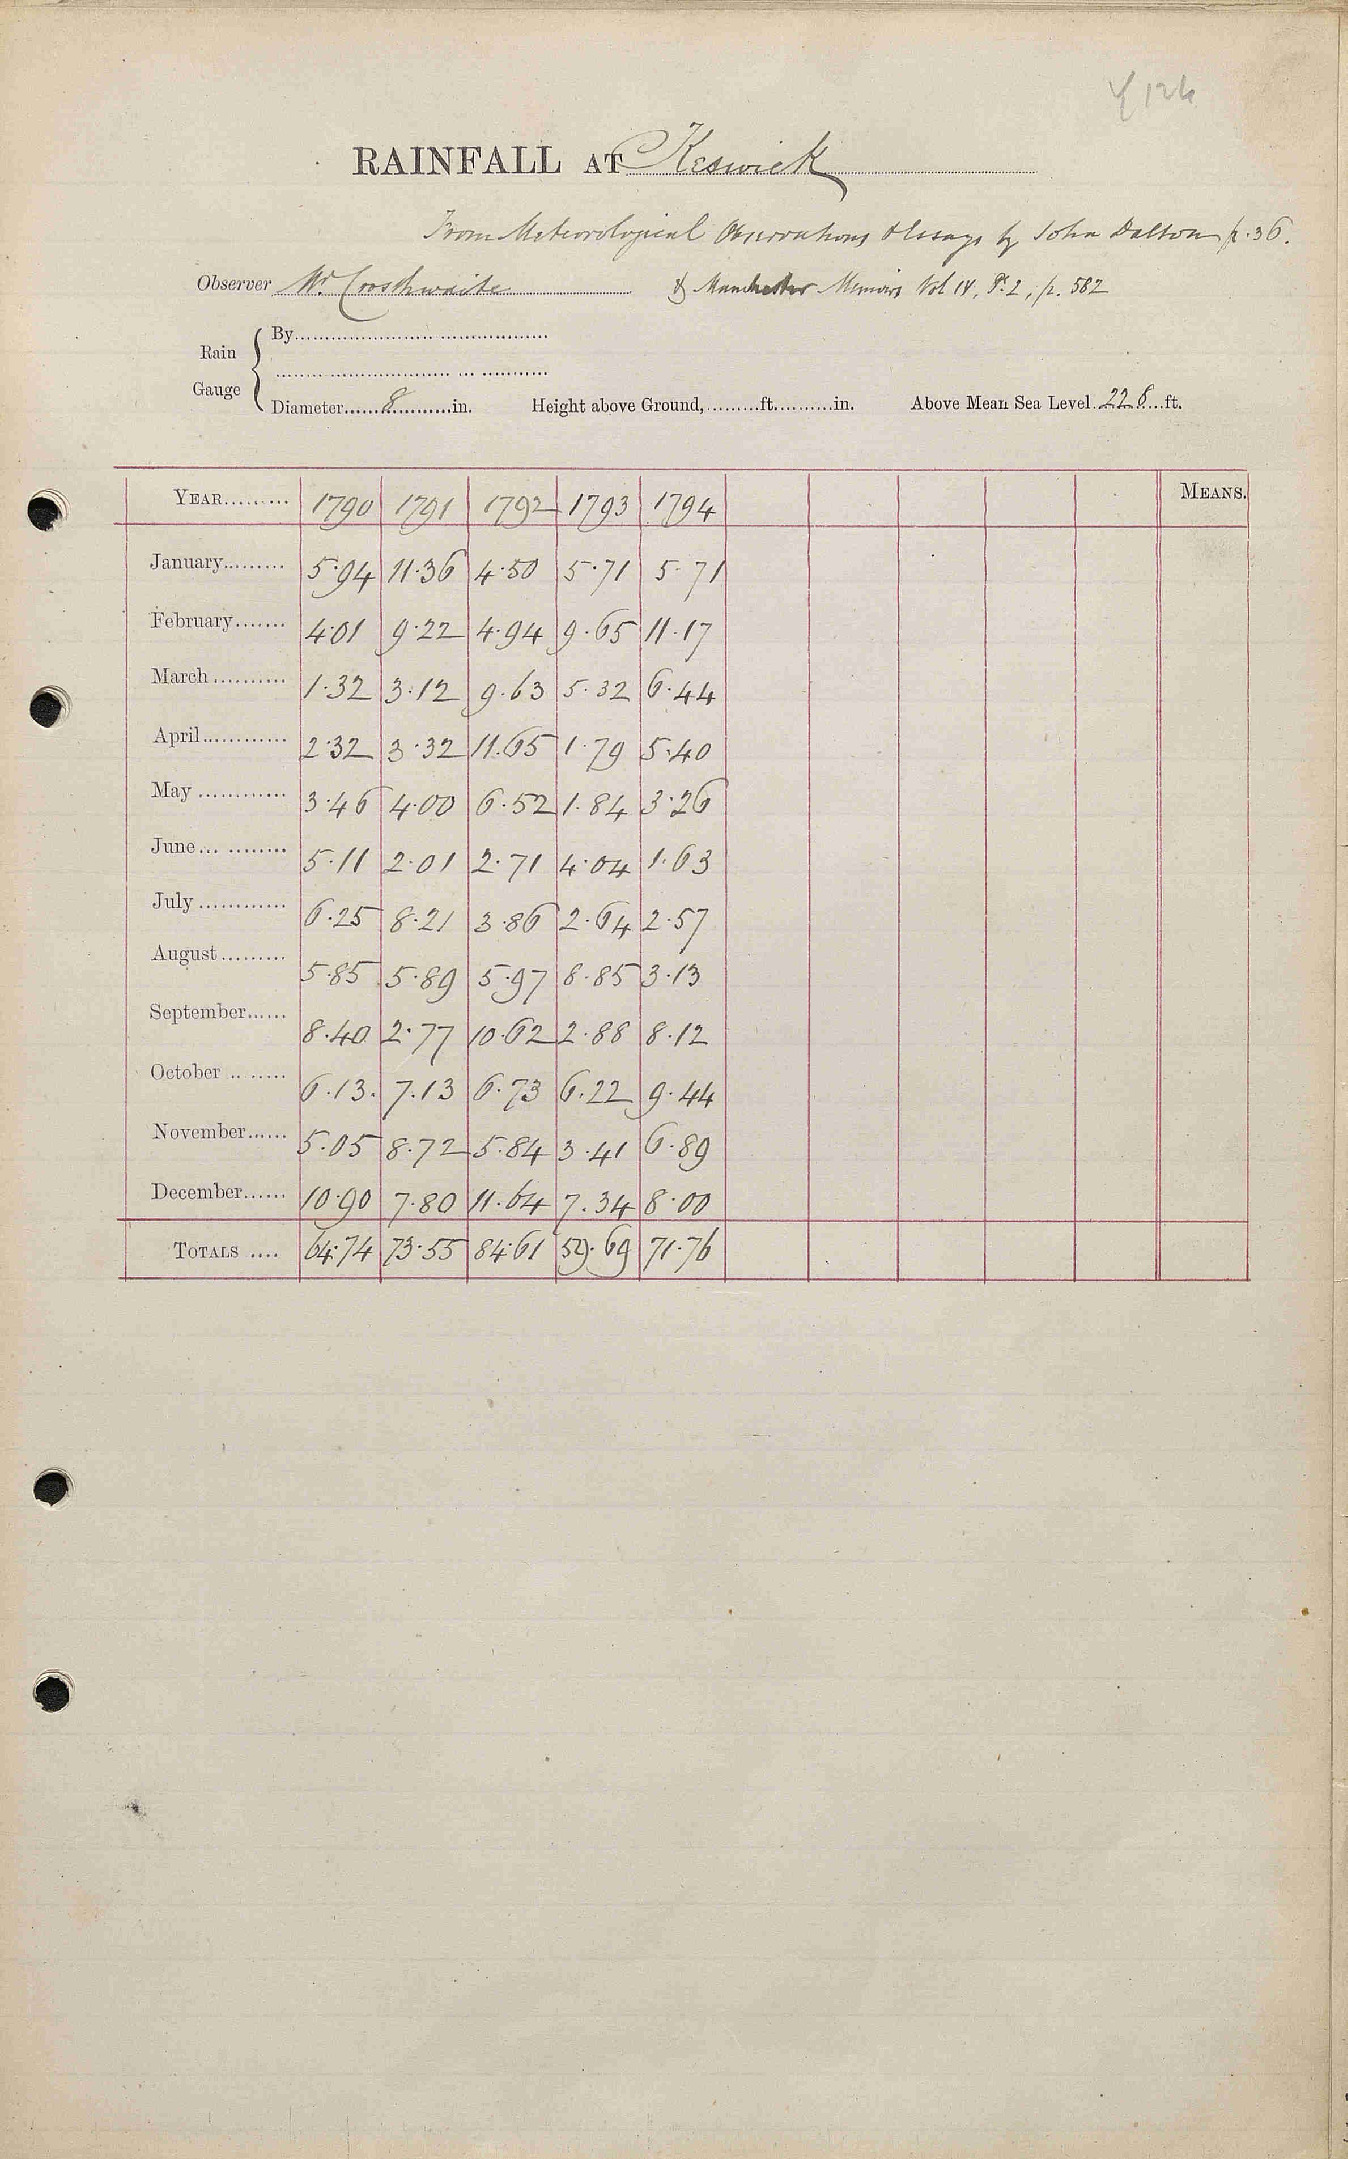 RAINFALL AT Keswick
From Meteorological Observations & Essays by John Dalton p. 36.
Observer Mr Crosthwaite
& Manchester Memoirs Vol IV, Pt. 2, p. 582
Rain Gauge
By
Diameter 8 in. Height above Ground, ft. in. Above Mean Sea Level 226 ft.
YEAR 1790 1791 1792 1793 1794 MEANS.
January 5.94 11.36 4.50 5.71 5.71
February 4.01 9.22 4.94 9.65 11.17
March 1.32 3.12 9.63 5.32 6.44
April 2.32 3.32 11.65 1.79 5.40
May 3.46 4.00 6.52 1.84 3.26
June 5.11 2.01 2.71 4.04 1.63
July 6.25 8.21 3.86 2.64 2.57
August 5.85 5.89 5.97 8.85 3.13
September 8.40 2.77 10.62 2.88 8.12
October 6.13. 7.13 6.73 6.22 9.44
November 5.05 8.72 5.84 3.41 6.89
December 10.90 7.80 11.64 7.34 8.00
TOTALS 64.74 73.55 84.61 59.69 71.76